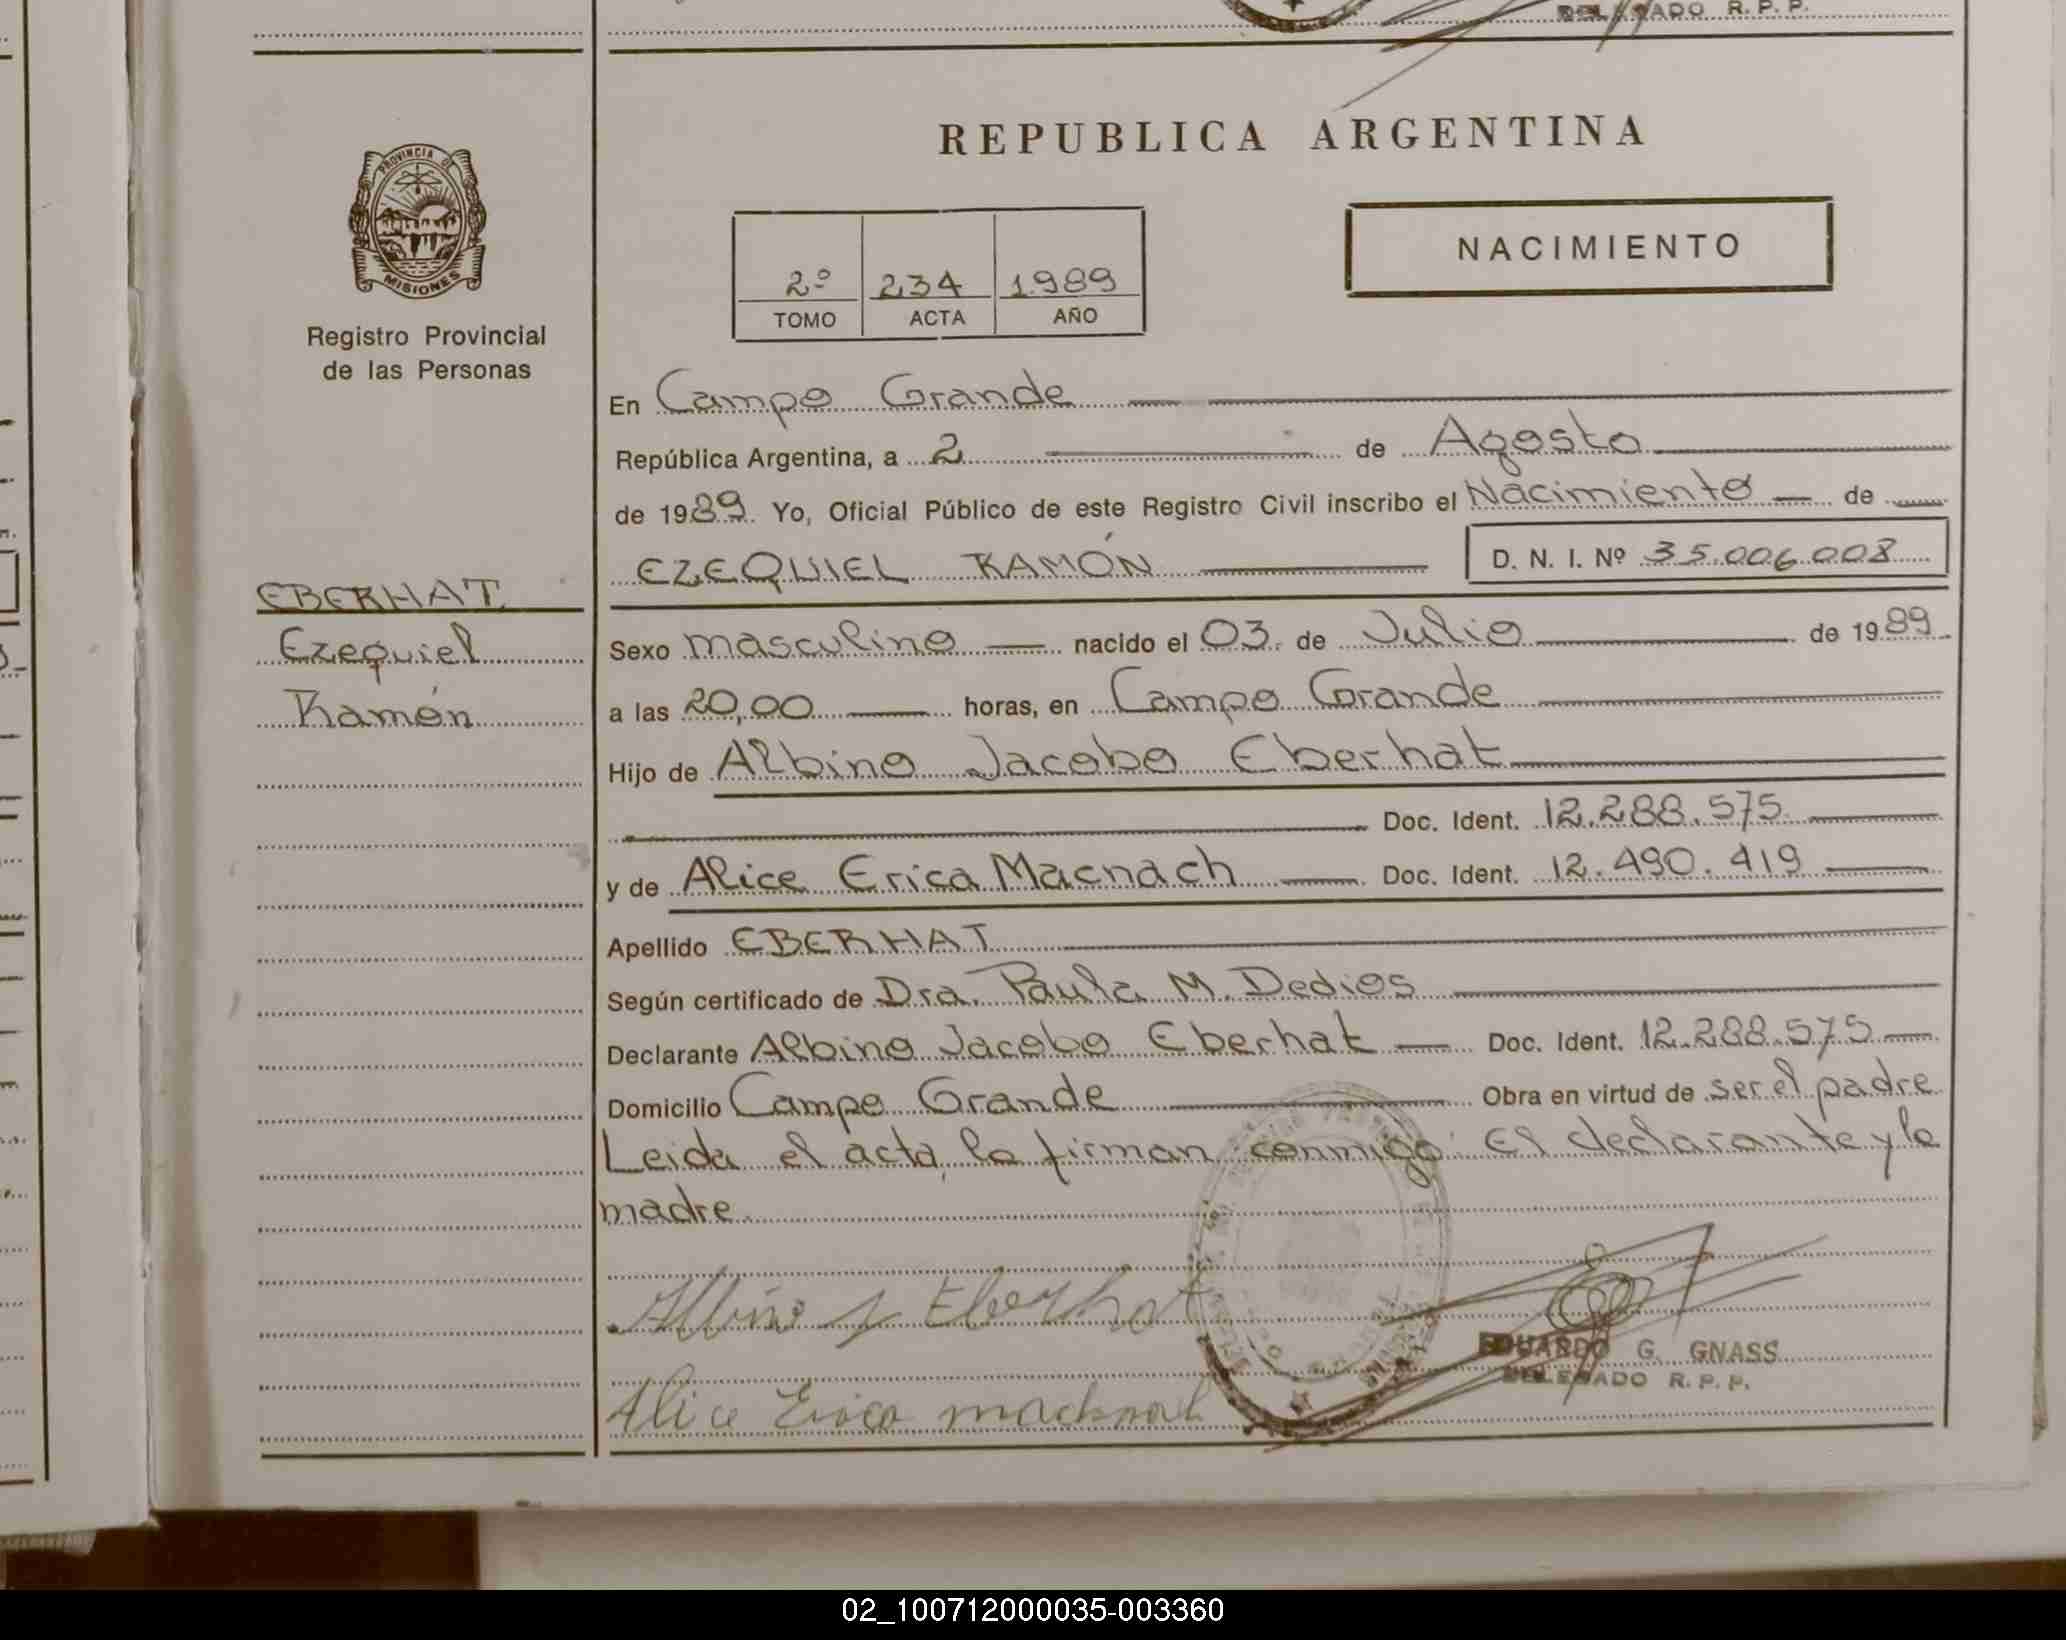 DELEGADO R. P. P.
PROVINCIA DE
MISIONES
Registro Provincial
de las Personas
EBERHAT
Ezequiel
Ramón
REPUBLICA ARGENTINA
2º 234 1989
TOMO ACTA AÑO
NACIMIENTO
En Campo Grande
República Argentina, a 2 de Agosto
de 1989 Yo, Oficial Público de este Registro Civil inscribo el Nacimiento de
EZEQUIEL RAMÓN D. N. I. Nº 35.006.008
Sexo masculino nacido el 03 de Julio de 1989
a las 20,00 horas, en Campo Grande
Hijo de Albino Jacobo Eberhat
Doc. Ident. 12.288.575
y de Alice Erica Macnach Doc. Ident. 12.490.419
Apellido EBERHAT
Según certificado de Dra. Paula M. Dedios
Declarante Albino Jacobo Eberhat Doc. Ident. 12.288.575
Domicilio Campo Grande Obra en virtud de ser el padre
Leida el acta, la firman conmigo: El declarante y la
madre
Albino J Eberhat
EDUARDO G. GNASS
DELEGADO R. P. P.
Alice Erica
02_100712000035-003360